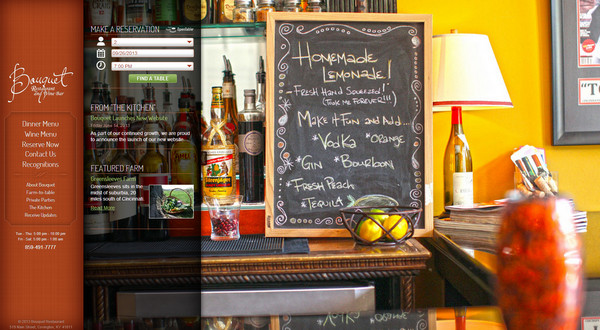 Bouquet
Restaurant
and Wine Bar
Dinner Menu
Wine Menu
Reserve Now
Contact Us
Recognitions
About Bouquet
Farm-to-table
Private Parties
The Kitchen
Receive Updates
Tue - Thu: 5:00 pm - 10:00 pm
859-491-7777
MAKE A RESERVATION
2
09/26/2013
7:00 PM
FIND A TABLE
FROM 'THE KITCHEN'
Bouquet Launches New Website
As part of our continued growth, we are proud
to announce the launch of our new website.
FEATURED FARM
Greensleeves Farm
Greensleeves sits in the
midst of suburbia, 20
miles south of Cincinnati.
Read More
Homemade
Lemonade!
-Fresh Hand Squeezed!
(Took me forever!!!)
Make it Fun and Add...
*Vodka *Orange
*Gin *Bourbon
*Fresh Peach
*Tequila